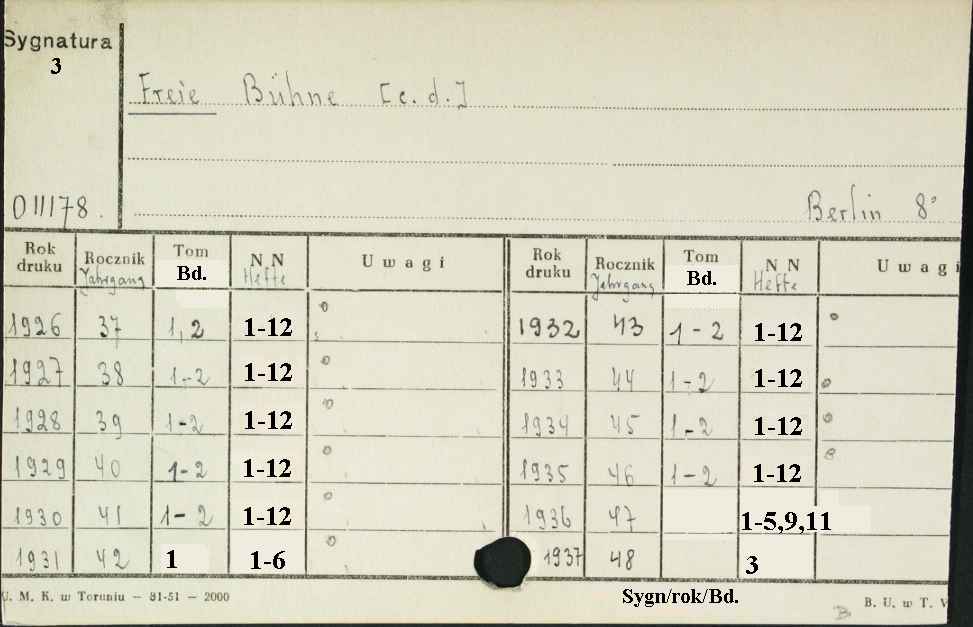 Sygnatura
3
Freie Bühne [c.d.]
011178.
Berlin 8°
Rok druku Rocznik Jahrgang Tom Bd. N N Hefte Uwagi Rok druku Rocznik Jahrgang Tom Bd. N N Hefte Uwagi
1926 37 1, 2 1-12 1932 43 1-2 1-12
1927 38 1-2 1-12 1933 44 1-2 1-12
1928 39 1-2 1-12 1934 45 1-2 1-12
1929 40 1-2 1-12 1935 46 1-2 1-12
1930 41 1-2 1-12 1936 47 1-5,9,11
1931 42 1 1-6 1937 48 3
U. M. K. w Toruniu — 81-51 — 2000 Sygn/rok/Bd. B B. U. w T. V